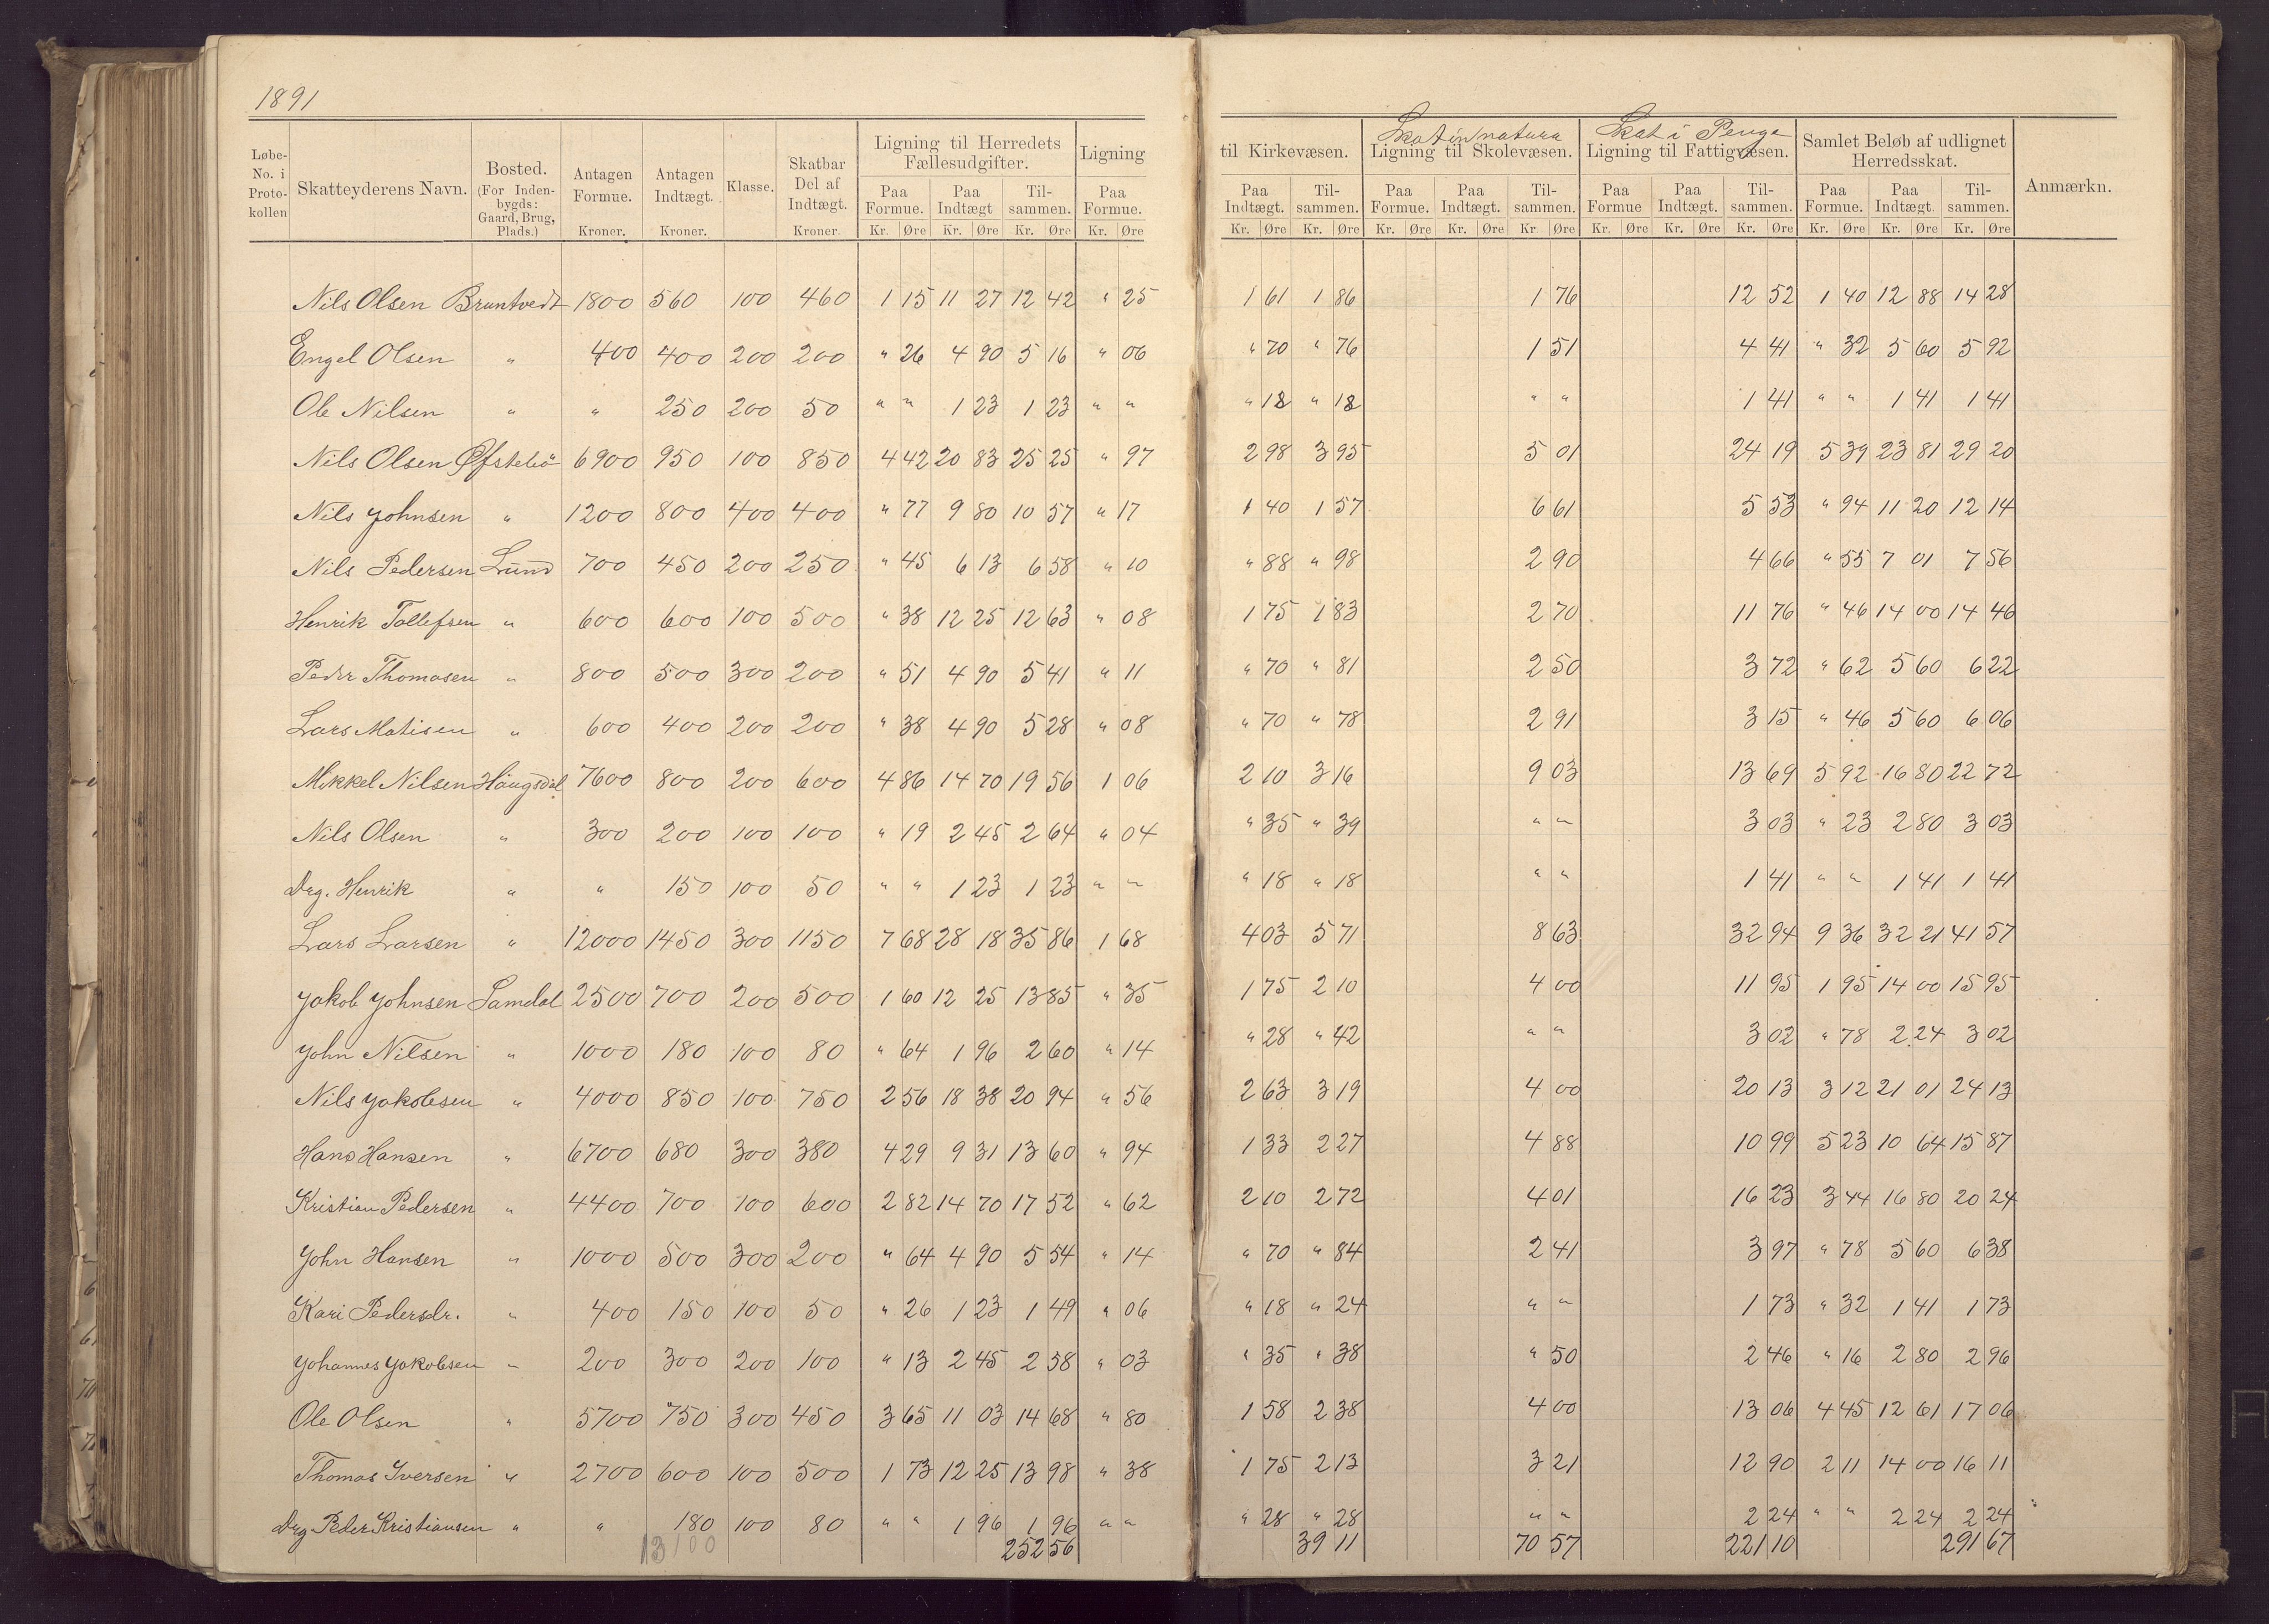 1891
Løbe-No. i Proto-kollen | Skatteyderens Navn. | Bosted. (For Inden-bygds: Gaard, Brug, Plads.) | Antagen Formue. Kroner. | Antagen Indtægt. Kroner. | Klasse. | Skatbar Del af Indtægt. Kroner. | Ligning til Herredets Fællesudgifter. Paa Formue. Kr. Øre | Paa Indtægt Kr. Øre | Til-sammen. Kr. Øre | Ligning Paa Formue. Kr. Øre | til Kirkevæsen. Paa Indtægt. Kr. Øre | Til-sammen. Kr. Øre | Skat in natura Ligning til Skolevæsen. Paa Formue. Kr. Øre | Paa Indtægt. Kr. Øre | Til-sammen. Kr Øre | Skat i Penge Ligning til Fattigvæsen. Paa Formue Kr. Øre | Paa Indtægt. Kr. Øre | Til-sammen. Kr. Øre | Samlet Beløb af udlignet Herredsskat. Paa Formue. Kr. Øre | Paa Indtægt. Kr. Øre | Til-sammen. Kr. Øre | Anmærkn.
Nils Olsen Bruntvedt 1800 560 100 460 1 15 11 27 12 42 " 25 1 61 1 86 1 76 12 52 1 40 12 88 14 28
Engel Olsen " 400 400 200 200 " 26 4 90 5 16 " 06 " 70 " 76 1 51 4 41 " 32 5 60 5 92
Ole Nilsen " " 250 200 50 " " 1 23 1 23 " " " 18 " 18 " " 1 41 " " 1 41 1 41
Nils Olsen Øfstebö 6900 950 100 850 4 42 20 83 25 25 " 97 2 98 3 95 5 01 24 19 5 39 23 81 29 20
Nils Johnsen " 1200 800 400 400 " 77 9 80 10 57 " 17 1 40 1 57 6 61 5 53 " 94 11 20 12 14
Nils Pedersen Lund 700 450 200 250 " 45 6 13 6 58 " 10 " 88 " 98 2 90 4 66 " 55 7 01 7 56
Henrik Tollefsen " 600 600 100 500 " 38 12 25 12 63 " 08 1 75 1 83 2 70 11 76 " 46 14 00 14 46
Peder Thomasen " 800 500 300 200 " 51 4 90 5 41 " 11 " 70 " 81 2 50 3 72 " 62 5 60 6 22
Lars Matisen " 600 400 200 200 " 38 4 90 5 28 " 08 " 70 " 78 2 91 3 15 " 46 5 60 6 06
Mikkel Nilsen Haugsdal 7600 800 200 600 4 86 14 70 19 56 1 06 2 10 3 16 9 03 13 69 5 92 16 80 22 72
Nils Olsen " 300 200 100 100 " 19 2 45 2 64 " 04 " 35 " 39 " " 3 03 " 23 2 80 3 03
Drg. Henrik " " 150 100 50 " " 1 23 1 23 " " " 18 " 18 " " 1 41 " " 1 41 1 41
Lars Larsen " 12000 1450 300 1150 7 68 28 18 35 86 1 68 4 03 5 71 8 63 32 94 9 36 32 21 41 57
Jakob Johnsen Lamdal 2500 700 200 500 1 60 12 25 13 85 " 35 1 75 2 10 4 00 11 95 1 95 14 00 15 95
John Nilsen " 1000 180 100 80 " 64 1 96 2 60 " 14 " 28 " 42 " " 3 02 " 78 2 24 3 02
Nils Jakobsen " 4000 850 100 750 2 56 18 38 20 94 " 56 2 63 3 19 4 00 20 13 3 12 21 01 24 13
Hans Hansen " 6700 680 300 380 4 29 9 31 13 60 " 94 1 33 2 27 4 88 10 99 5 23 10 64 15 87
Kristian Pedersen " 4400 700 100 600 2 82 14 70 17 52 " 62 2 10 2 72 4 01 16 23 3 44 16 80 20 24
John Hansen " 1000 500 300 200 " 64 4 90 5 54 " 14 " 70 " 84 2 41 3 97 " 78 5 60 6 38
Kari Pedersdr. " 400 150 100 50 " 26 1 23 1 49 " 06 " 18 " 24 " " 1 73 " 32 1 41 1 73
Johannes Jakobsen " 200 300 200 100 " 13 2 45 2 58 " 03 " 35 " 38 " 50 2 46 " 16 2 80 2 96
Ole Olsen " 5700 750 300 450 3 65 11 03 14 68 " 80 1 58 2 38 4 00 13 06 4 45 12 61 17 06
Thomas Iversen " 2700 600 100 500 1 73 12 25 13 98 " 38 1 75 2 13 3 21 12 90 2 11 14 00 16 11
Drg Peder Kristiansen " " 180 100 80 " " 1 96 1 96 " " " 28 " 28 " " 2 24 " " 2 24 2 24
13100 252 56 39 11 70 57 221 10 291 67